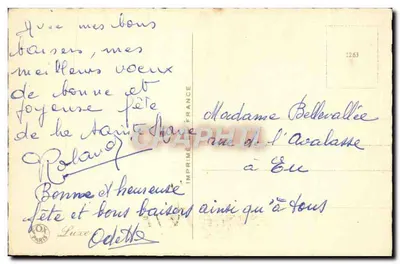 Avec mes bons
baisers, mes
meilleurs voeux
de bonne et
joyeuse fête
de la Sainte Marie
Roland
Bonne et heureuse
fête et bons baisers ainsi qu'à tous
Odette
Luxe
IMPRIMÉ EN FRANCE
1261
Madame Bellevallée
rue de l'Avalasse
à Eu